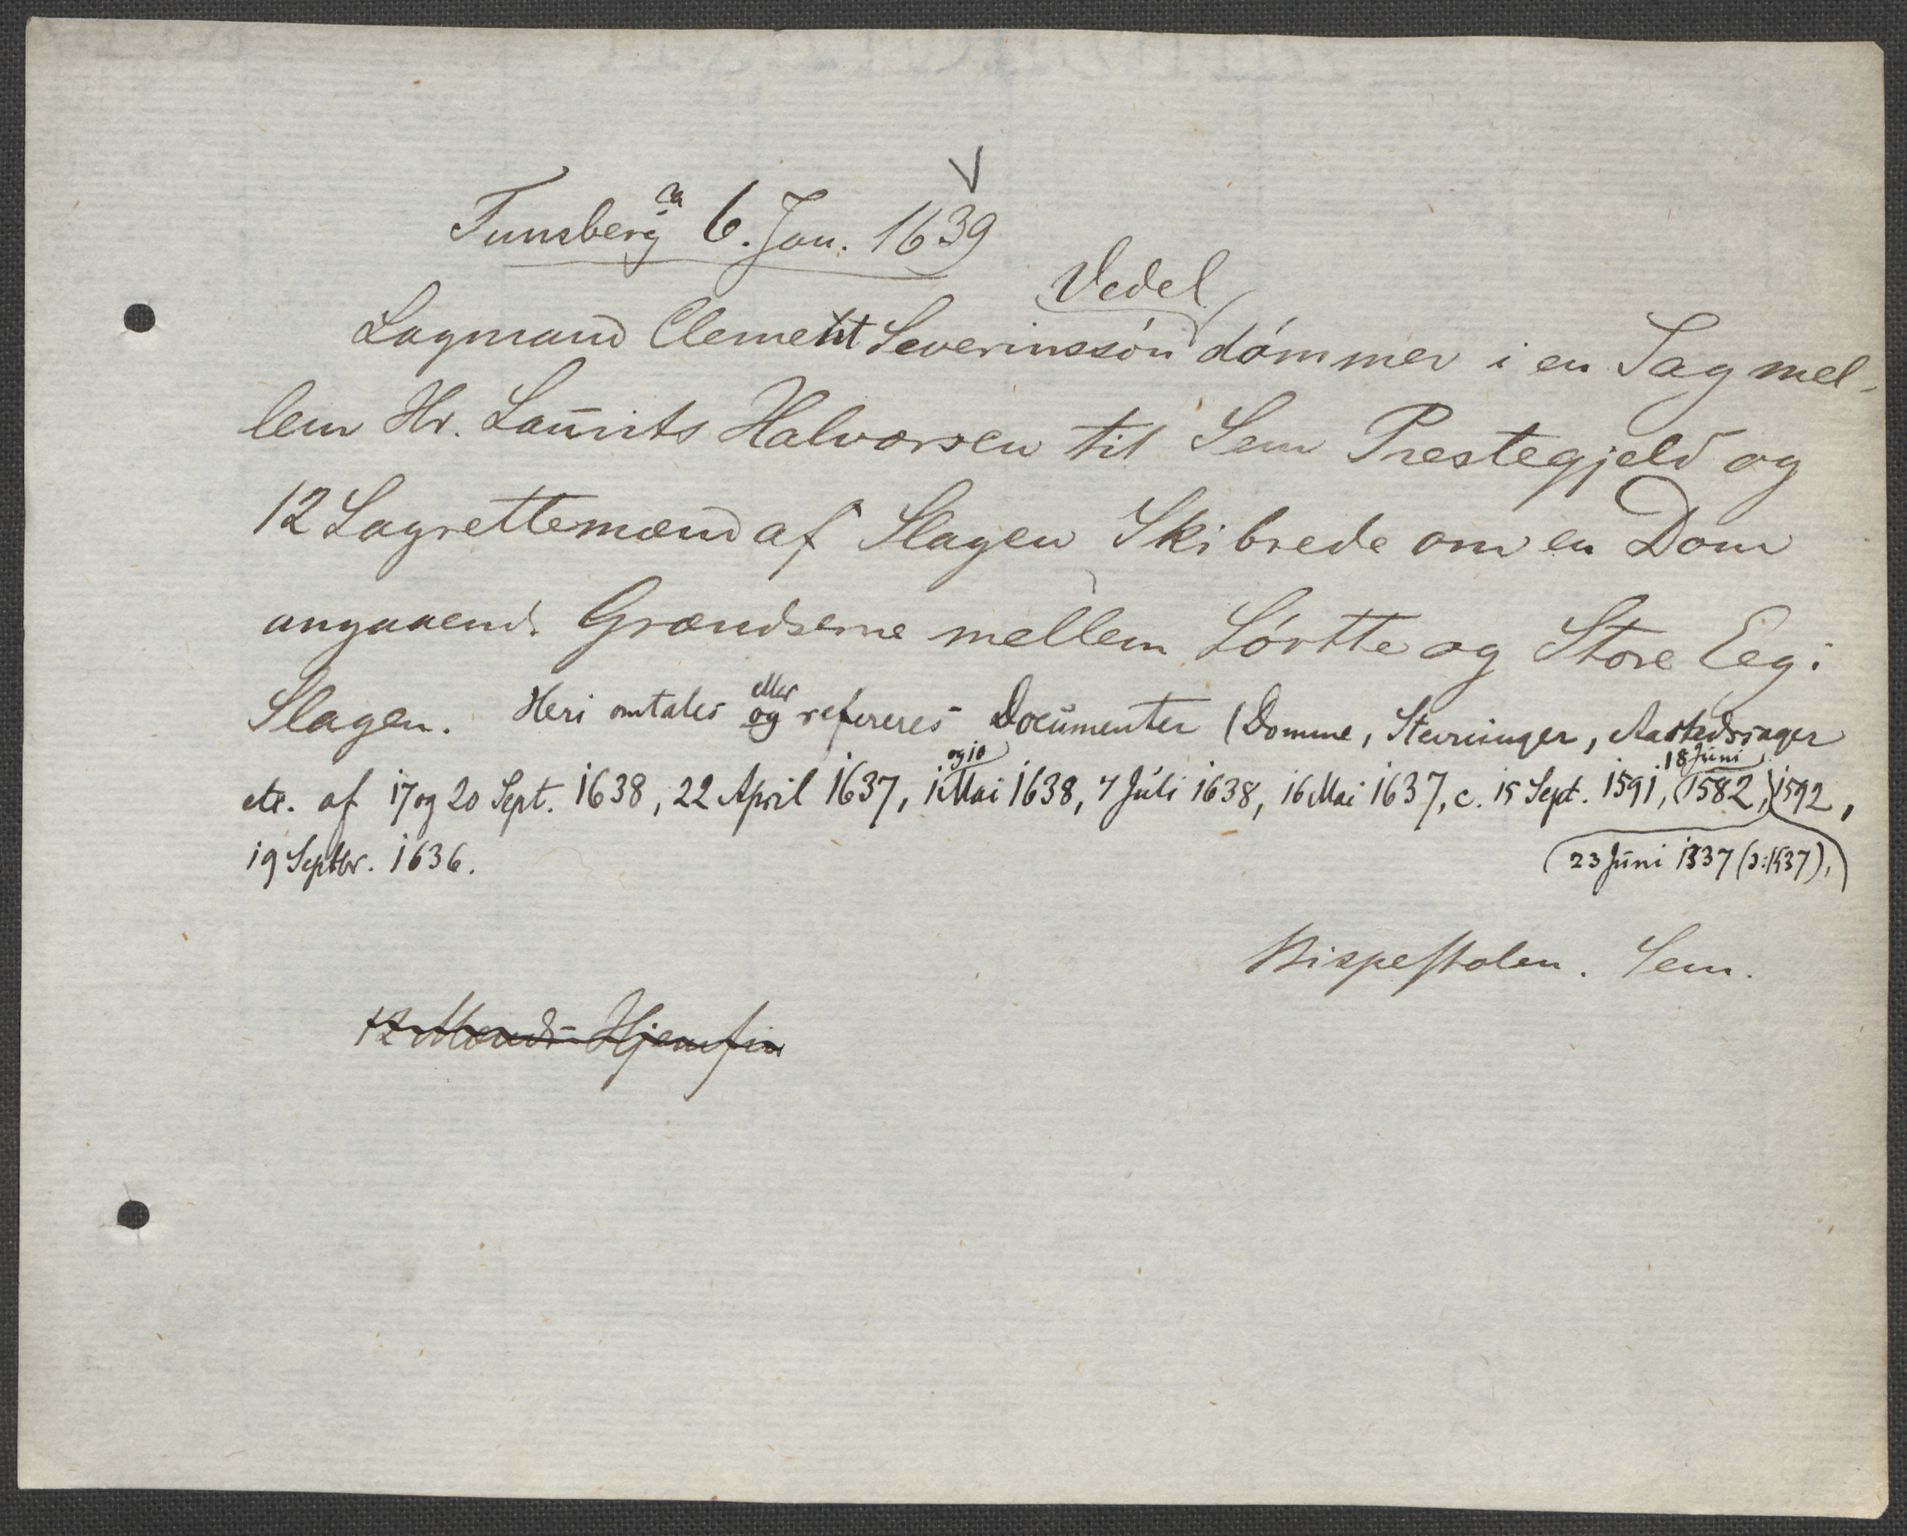 V
Tunsberg ca 6. Jan. 1639
Vedel
Lagmand Clement Severinssön dömmer i en Sag mel-
lem Hr. Laurits Halvorsen til Sem Prestegjeld og
12 Lagrettemænd af Slagen Skibrede om en Dom
angaaend. Grændserne mellem Lörtte og Store Eeg i
Slagen. Heri omtales og eller refereres Documenter (Domme, Stevninger, Aastedssager
og 10 18 Juni
etc. af 17 og 20 Sept. 1638, 22 April 1637, 1 Mai 1638, 7 Juli 1638, 16 Mai 1637, c. 15 Sept. 1591, 1582, 1592,
19 Septbr. 1636. 23 Juni 1337 (ɔ: 1537),
Bispestolen. Sem.
12 Mænds